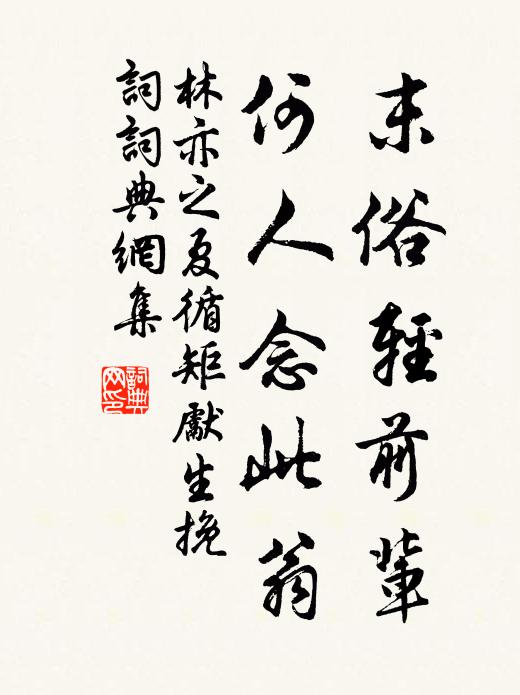 末俗輕前輩
何人念此翁
林亦之夏循矩獻生挽
詞詞典網集
詞典網印